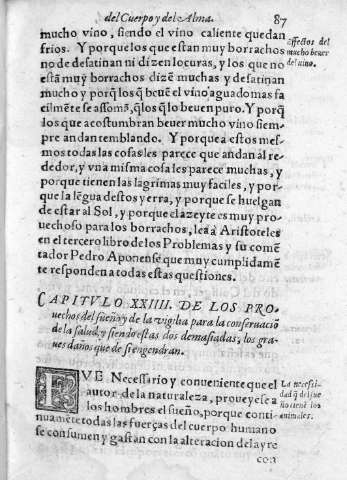 del Cuerpo y del Alma. 87
mucho vino, siendo el vino caliente quedan
frios. Y porque los que estan muy borrachos
no desatinan ni dizen locuras, y los que no
estã muy borrachos dizẽ muchas y desatinan
mucho y porq̃ los q̃ beuẽ el vino aguado mas fa
cilmẽte se assomã, q̃ los q̃ lo beuen puro. Y porq̃
los que acostumbran beuer mucho vino siem-
pre andan temblando. Y porque a estos mes-
mos todas las cosas les parece que andan al re-
dedor, y vna misma cosa les parece muchas, y
porque tienen las lagrimas muy faciles, y por-
que la lẽgua destos yerra, y porque se huelgan
de estar al Sol, y porque el azeyte es muy pro-
uechoso para los borrachos, lea à Aristoteles
en el tercero libro de los Problemas y su comẽ
tador Pedro Aponense que muy cumplidamẽ
te responden a todas estas questiones.
Effectos del
mucho beuer
del vino.
CAPITVLO XXIIII. DE LOS PRO-
uechos del sueño y de la vigilia para la conseruaciõ
de la salud, y siendo estas dos demasiadas, los gra-
ues daños que de si engendran.
FVE Necessario y conueniente que el
autor de la naturaleza, proueyese a
los hombres el sueño, porque conti-
nuamẽte todas las fuerças del cuerpo humano
se consumen y gastan con la alteracion del ayre
La necessi-
dad q̃ del sue
ño tienẽ los
animales.
con